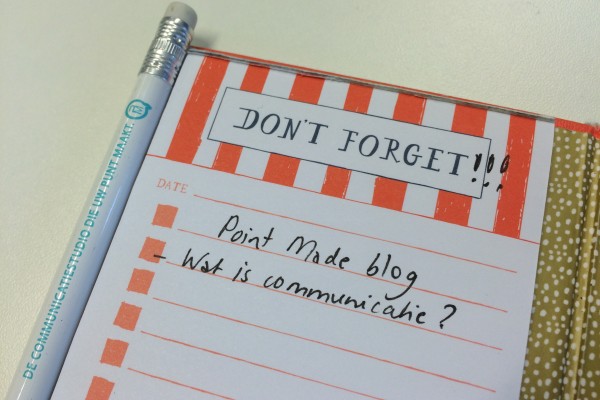 DON'T FORGET!!!
DATE
Point Made blog
- Wat is communicatie?
DE COMMUNICATIESTUDIO DIE UW PUNT MAAKT.